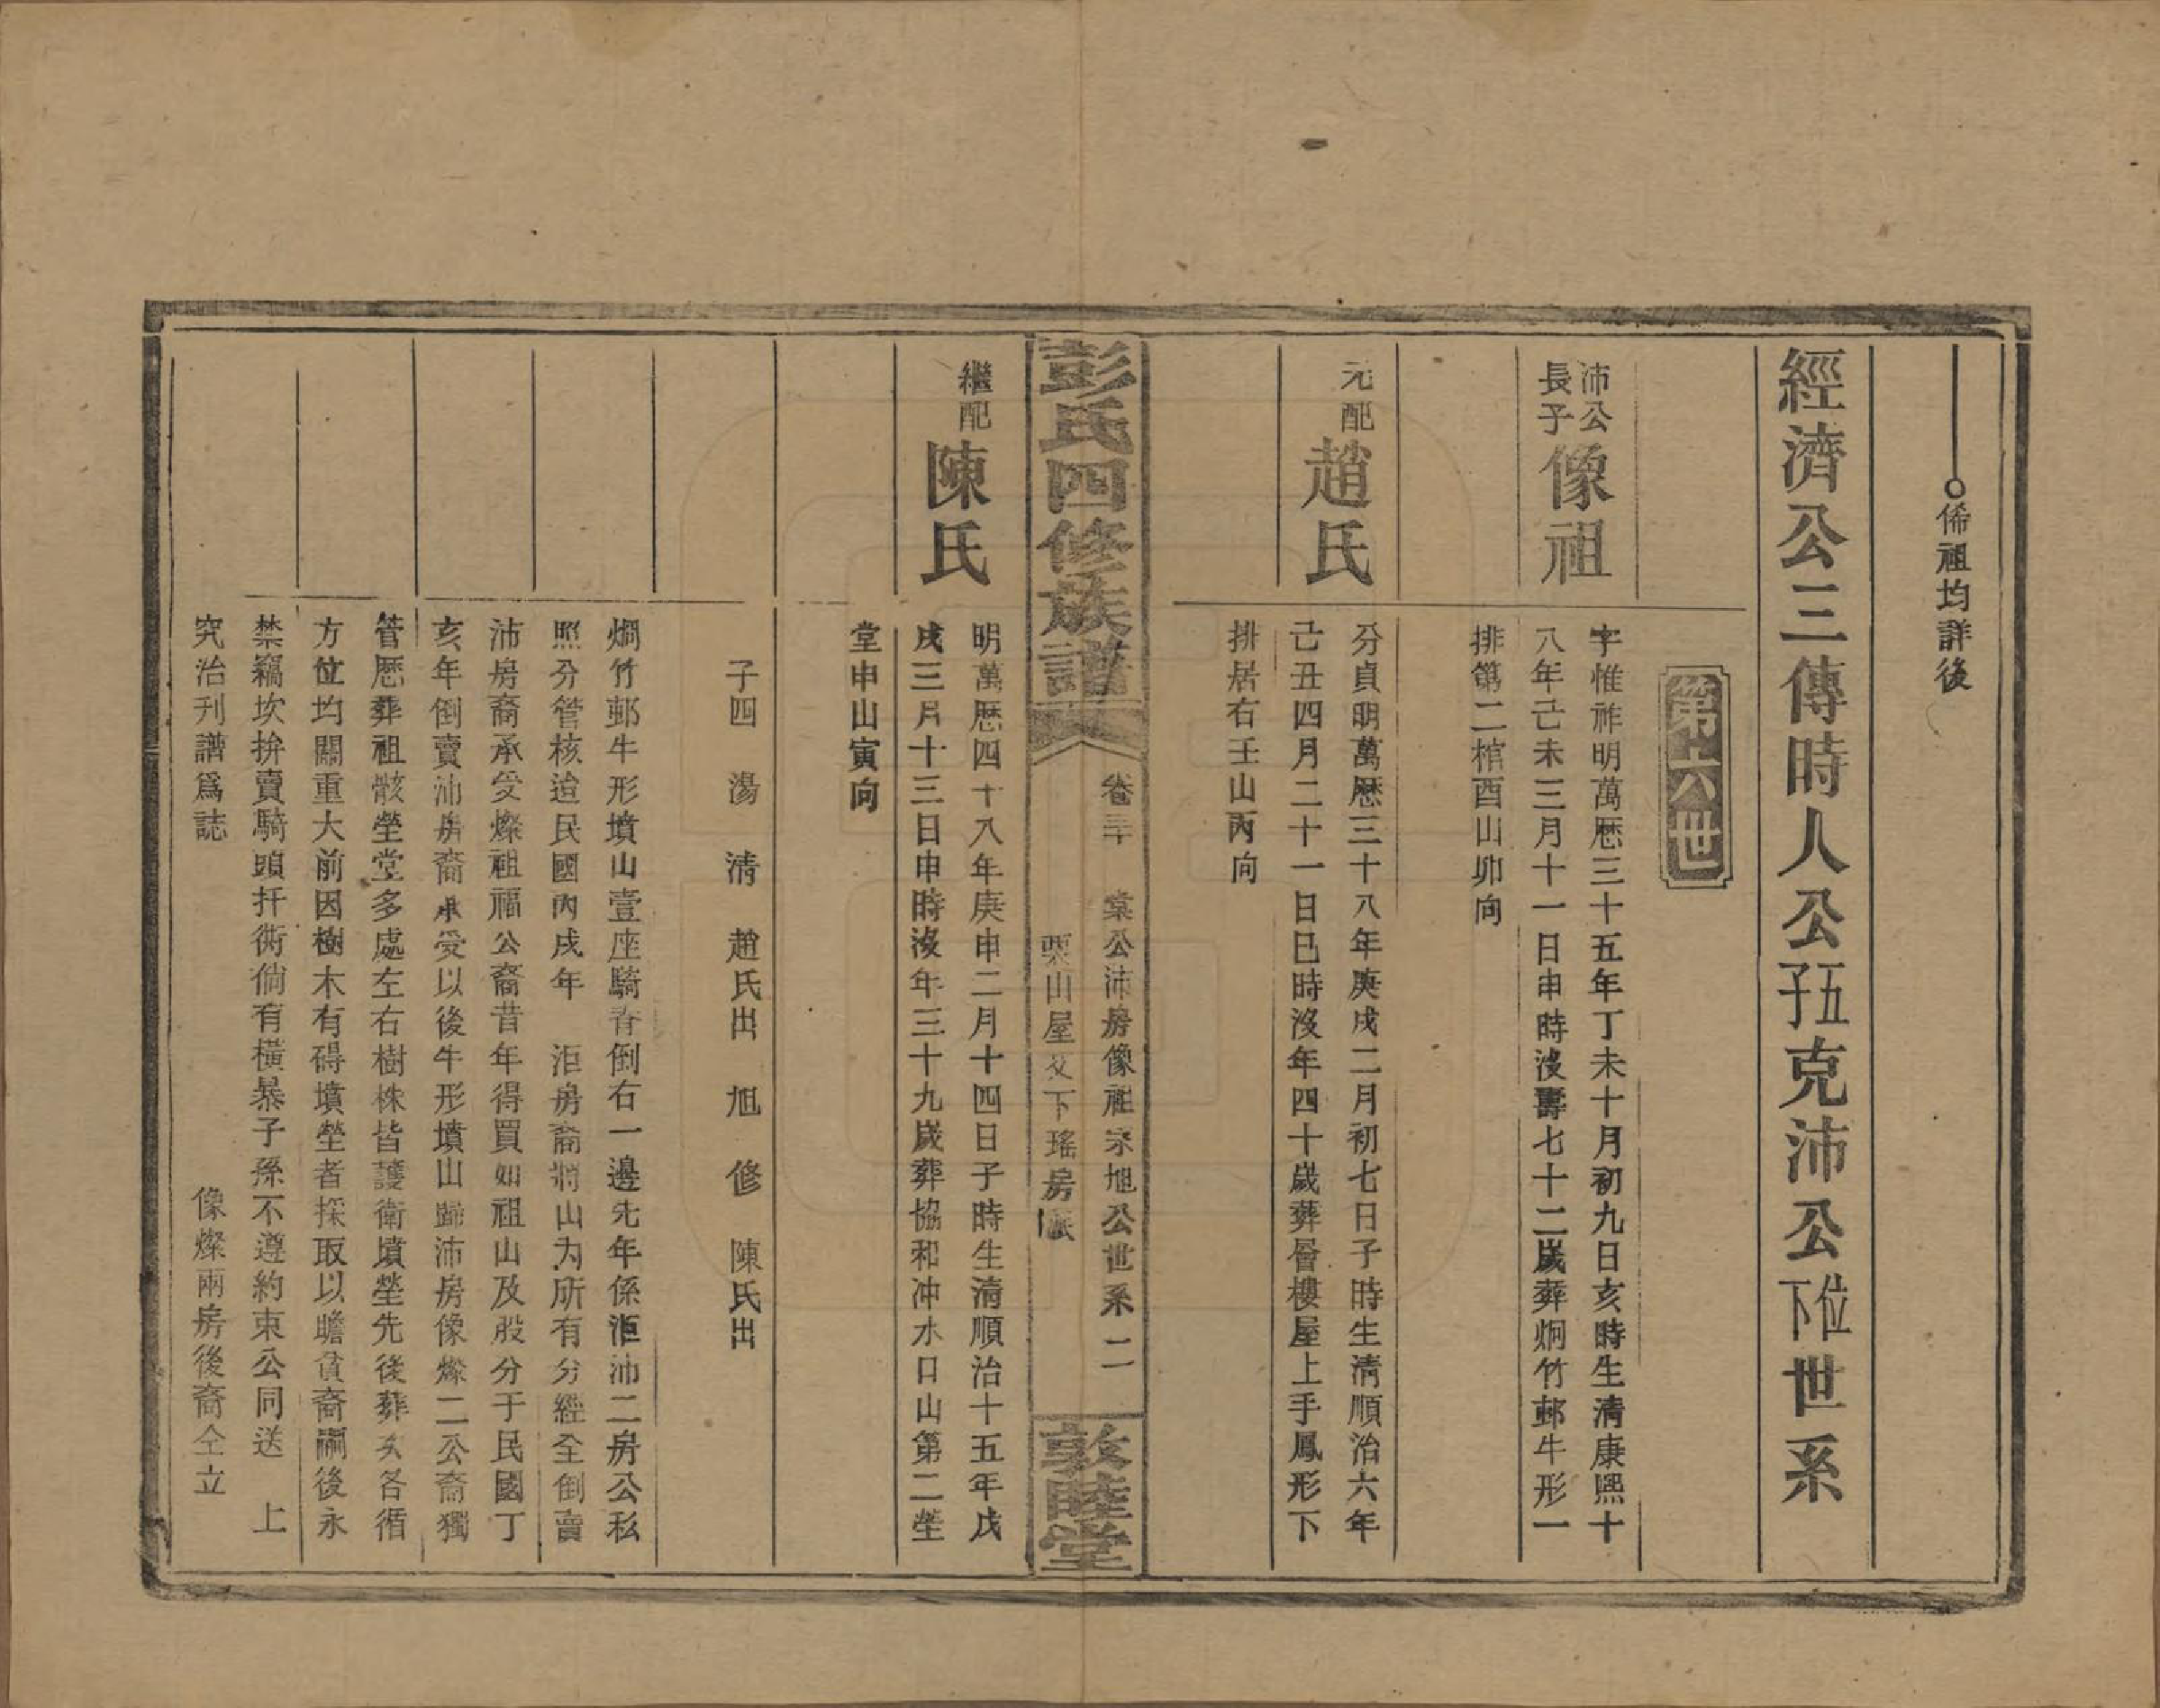 俙祖均詳後
經濟公三傳時人公子五克沛公位下世系
第十六世
沛公長子 像祖
字惟祚明萬歷三十五年丁未十月初九日亥時生清康熙十
八年己未三月十一日申時沒壽七十二歲葬炯竹邨牛形一
排第二棺酉山卯向
元配 趙氏
分貞明萬歷三十八年庚戌二月初七日子時生清順治六年
己丑四月二十一日巳時沒年四十歲葬層樓屋上手鳳形下
排居右壬山丙向
彭氏四修族譜
卷三十 棠公沛房像祖宗旭公世系 二
栗山屋 下瑤房派
敦睦堂
繼配 陳氏
明萬歷四十八年庚申二月十四日子時生清順治十五年戊
戌三月十三日申時沒年三十九歲葬協和冲水口山第二塋
堂申山寅向
子四 湯 清 趙氏出 旭 修 陳氏出
烱竹邨牛形墳山壹座騎脊倒右一邊先年係洰沛二房公私
照分管核迨民國丙戌年 洰房裔將山內所有分經全倒賣
沛房裔承受燦祖福公裔昔年得買如祖山及股分于民國丁
亥年倒賣沛房裔承受以後牛形墳山歸沛房像燦二公裔獨
管歷葬祖骸塋堂多處左右樹株皆護衛墳塋先後葬亥各循
方位均關重大前因樹木有碍墳塋者採取以瞻貧裔嗣後永
禁竊坎拚賣騎頭扦衖倘有橫暴子孫不遵約束公同送 上
究治刋譜爲誌 像燦兩房後裔仝立